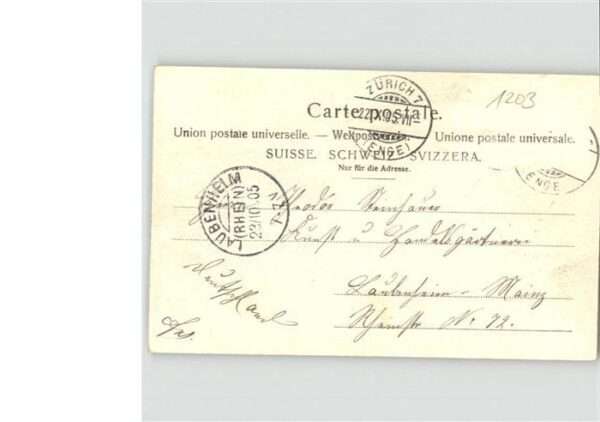 1203
ZÜRICH 7
22.X.05.VII-
(ENGE)
Carte postale.
Union postale universelle. — Weltpostverein. — Unione postale universale.
SUISSE. SCHWEIZ. SVIZZERA.
Nur für die Adresse.
ENGE
LAUBENHEIM
(RHEIN)
23/10 05
Theodor Steinhauer
Kunst u. Handelsgärtnerei
Laubenheim - Mainz
Rheinstr No. 72.
Deutschland